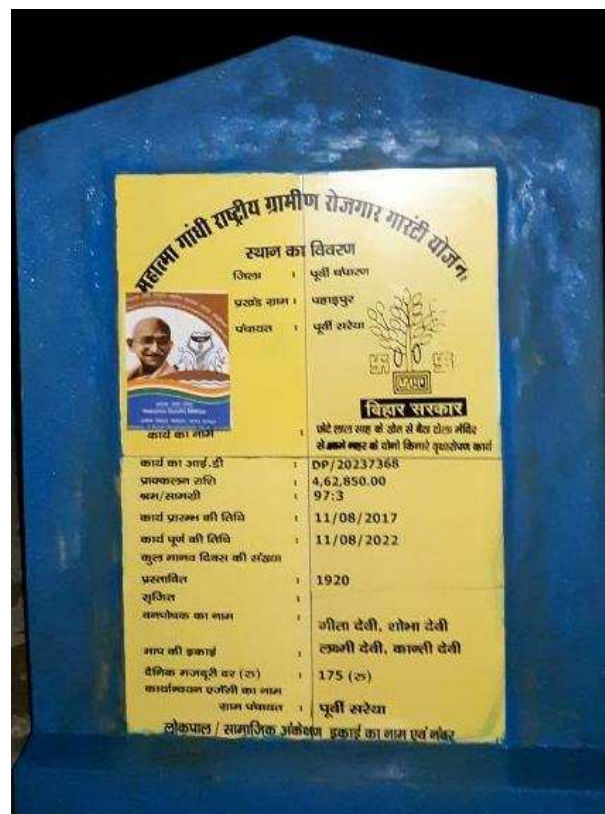 महात्मा गांधी राष्ट्रीय ग्रामीण रोजगार गारंटी योजना
स्थान का विवरण
जिला : पूर्वी चंपारण
प्रखंड ग्राम : पहाड़पुर
पंचायत : पूर्वी सरेया
बिहार सरकार
कार्य का नाम : छोटे लाल साह के खेत से बैठा टोला मंदिर
से आगे नहर के दोनों किनारे वृक्षारोपण कार्य
कार्य का आई.डी : DP/20237368
प्राक्कलन राशि : 4,62,850.00
श्रम/सामग्री : 97:3
कार्य प्रारम्भ की तिथि : 11/08/2017
कार्य पूर्ण की तिथि : 11/08/2022
कुल मानव दिवस की संख्या
प्रस्तावित : 1920
सृजित :
वनपोषक का नाम : गीता देवी, शोभा देवी
माप की इकाई : लक्ष्मी देवी, कान्ती देवी
दैनिक मजदूरी दर (रु) : 175 (रु)
कार्यान्वयन एजेंसी का नाम
ग्राम पंचायत : पूर्वी सरेया
लोकपाल / सामाजिक अंकेक्षण इकाई का नाम एवं नंबर